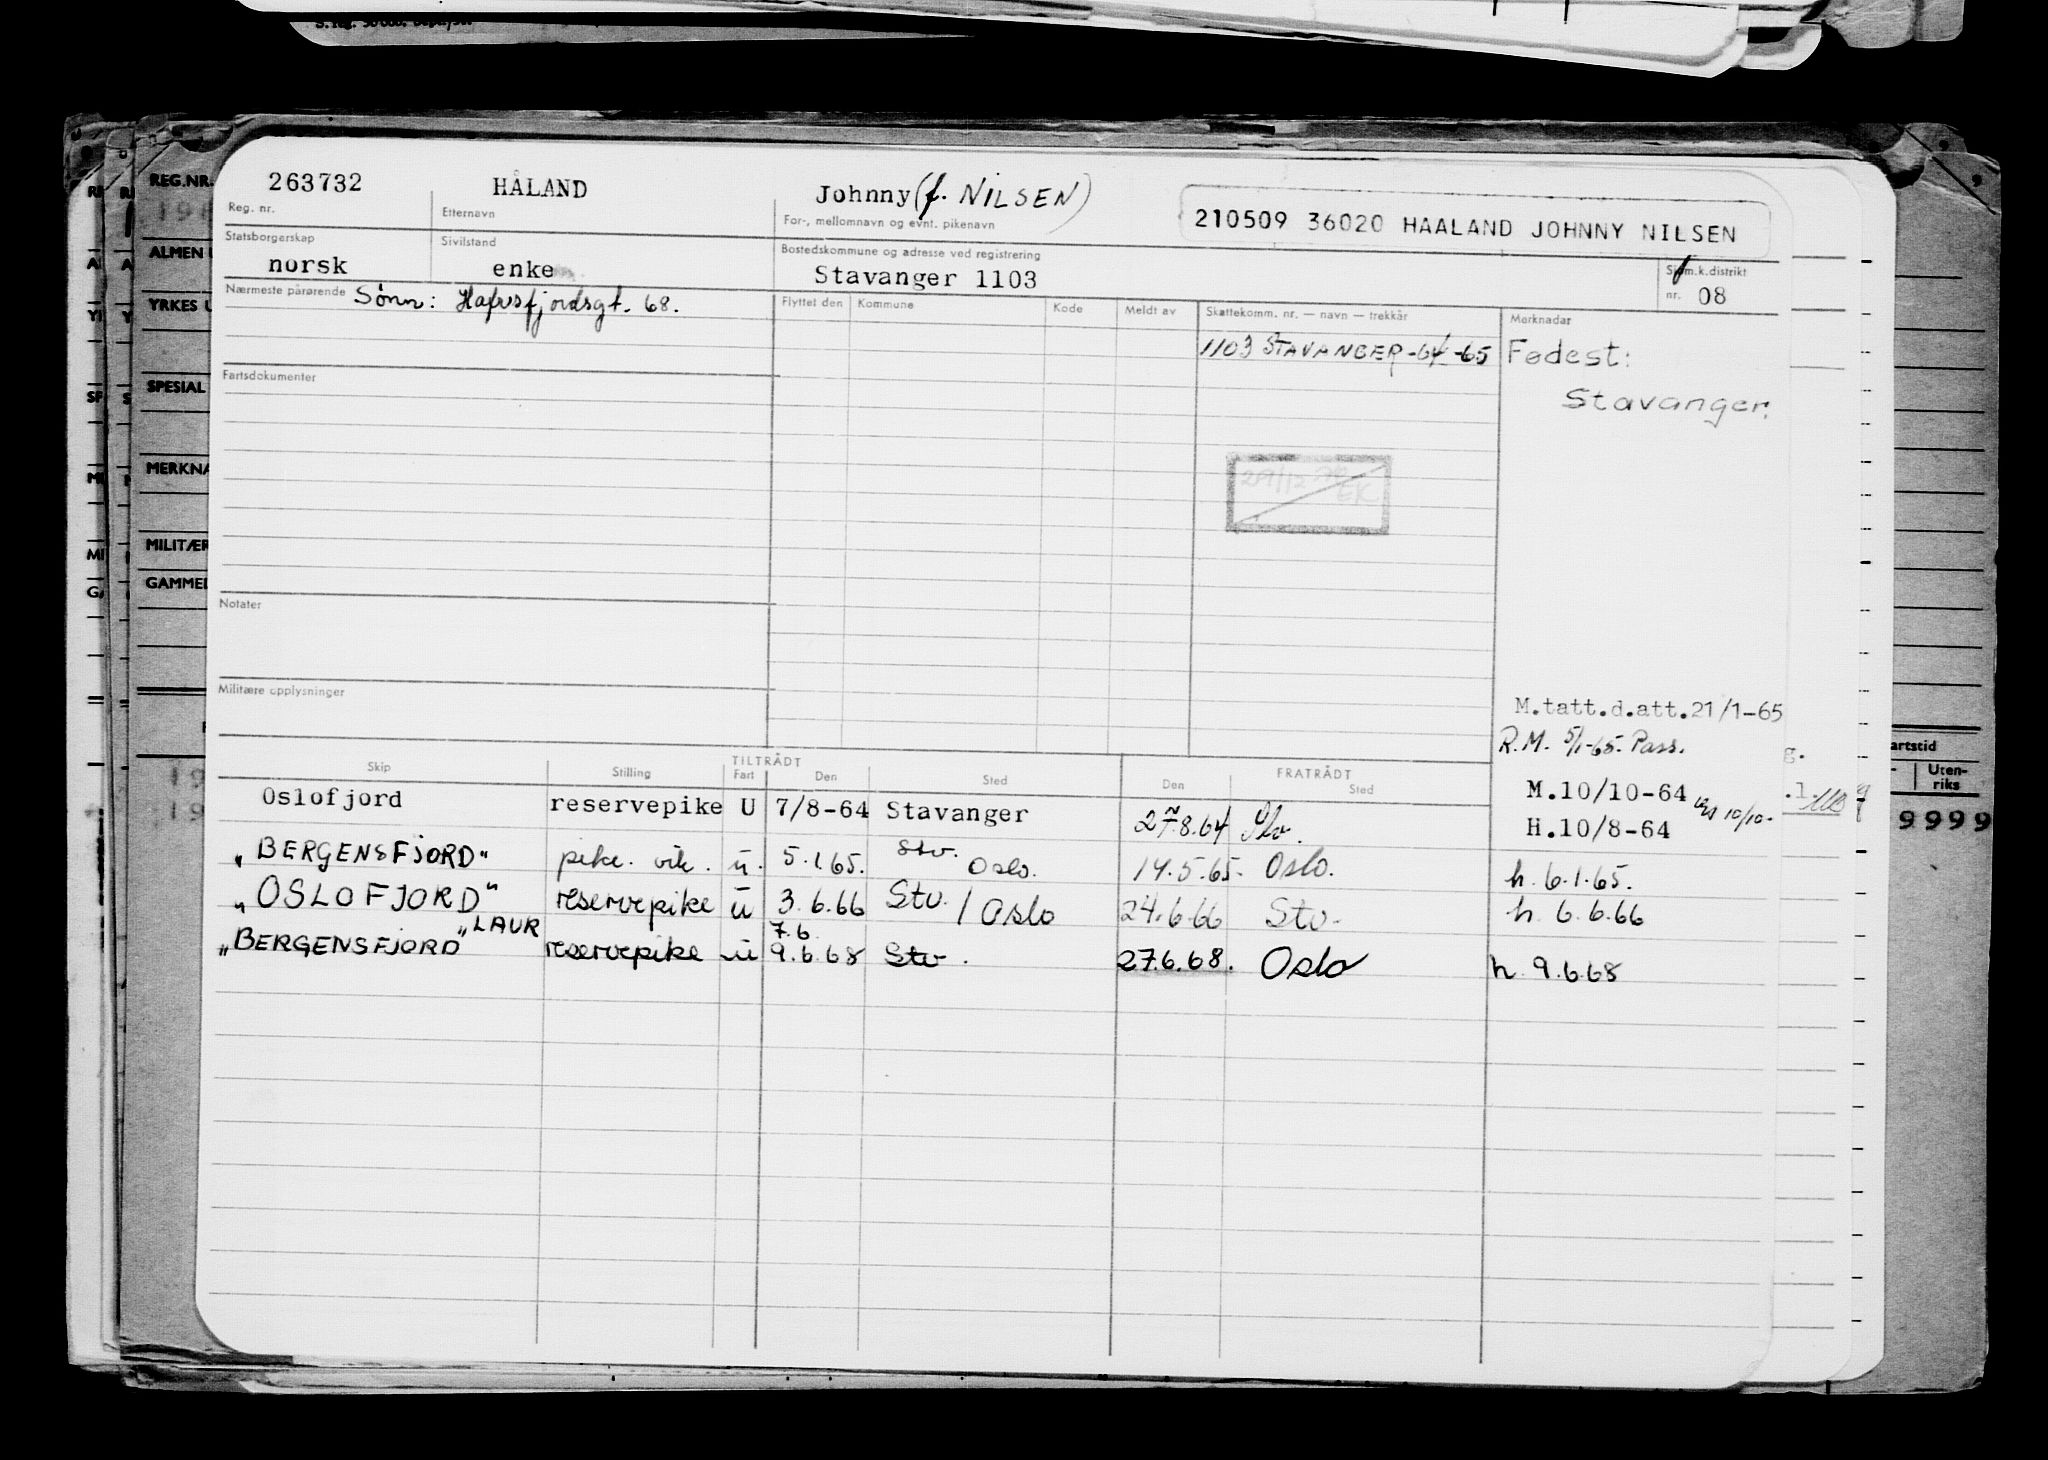 S. Reg.
REG.NR.
ALMEN
YRKES U
SPESIAL
MERKNA
MILITÆR
GAMMEL
263732 HÅLAND Johnny (f. NILSEN)
Reg. nr. Etternavn For-, mellomnavn og evnt. pikenavn
210509 36020 HAALAND JOHNNY NILSEN
Statsborgerskap Sivilstand Bostedskommune og adresse ved registrering
norsk enke Stavanger 1103
Sjøm.k.distrikt
nr. 08
Nærmeste pårørende Sønn: Hafrsfjordsgt. 68.
Flyttet den Kommune Kode Meldt av Skattekomm. nr. — navn — trekkår Merknader
1103 STAVANGER -64 -65 Fødest:
Stavanger.
Fartsdokumenter
29/12 EK
Notater
Militære opplysninger
M.tatt.d.att.21/1-65
R.M. 5/1-65. Pass.
TILTRÅDT FRATRÅDT
Skip Stilling Fart Den Sted Den Sted
M.10/10-64
Oslofjord reservepike U 7/8-64 Stavanger 27.8.64 Stv. H.10/8-64
„BERGENSFJORD" pike. vik. u. 5.1.65. Stv. Oslo. 14.5.65. Oslo. h. 6.1.65.
„OSLOFJORD" reservepike u 3.6.66 Stv. / Oslo 24.6.66 Stv. h. 6.6.66
"LAUR 7.6
„BERGENSFJORD" reservepike u 9.6.68 Stv. 27.6.68. Oslo h. 9.6.68
artstid
Uten-
riks
9999